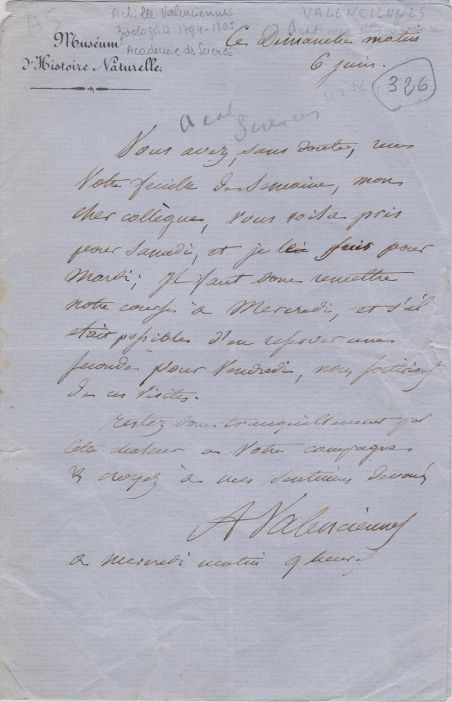 AS
Achille Valenciennes
Zoologiste 1794-1865
Académie des Sciences
VALENCIENNES
Muséum
d'Histoire Naturelle.
Ce Dimanche matin
6 juin.
326
Acad
Sciences
Vous avez, sans doute, reçu
votre feuille de Semaine, mon
cher collègue, vous voila pris
pour Samedi, et je le suis pour
Mardi; Il faut donc remettre
notre course à Mercredi, et s'il
était possible d'en réserver une
seconde pour Vendredi, nous
de ces visites.
restez donc tranquillement par
cette chaleur à votre campagne
& croyez à mes sentimens dévoués
A Valenciennes
à mercredi matin 9 heures